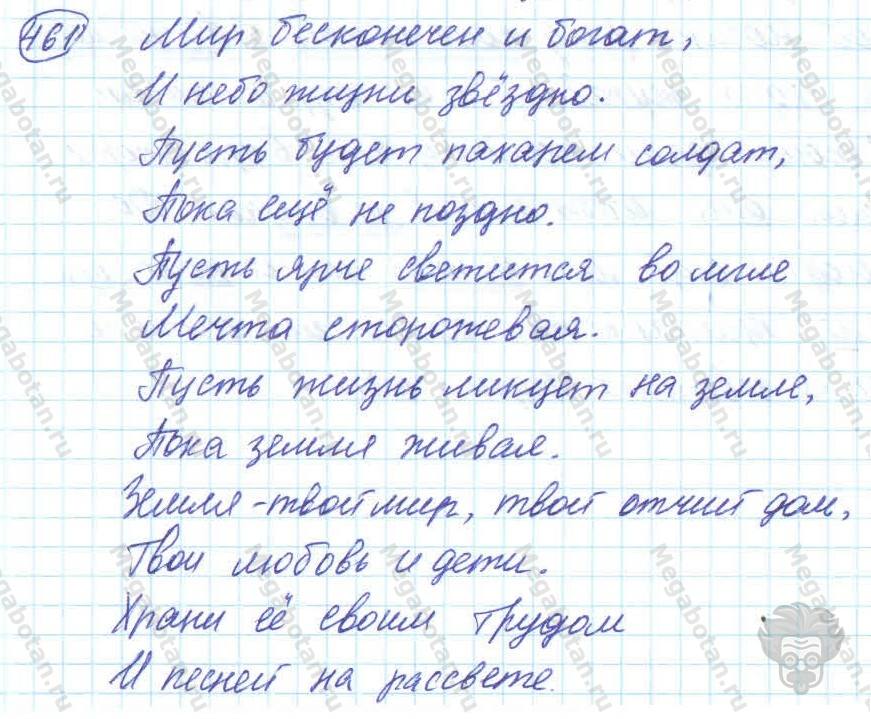 461 Мир бесконечен и богат,
И небо жизни звёздно.
Пусть будет пахарем солдат,
Пока ещё не поздно.
Пусть ярче светится во мгле
Мечта сторожевая.
Пусть жизнь ликует на земле,
Пока земля живая.
Земля - твой мир, твой отчий дом,
Твои любовь и дети.
Храни её своим трудом
И песней на рассвете.
Megabotan.ru